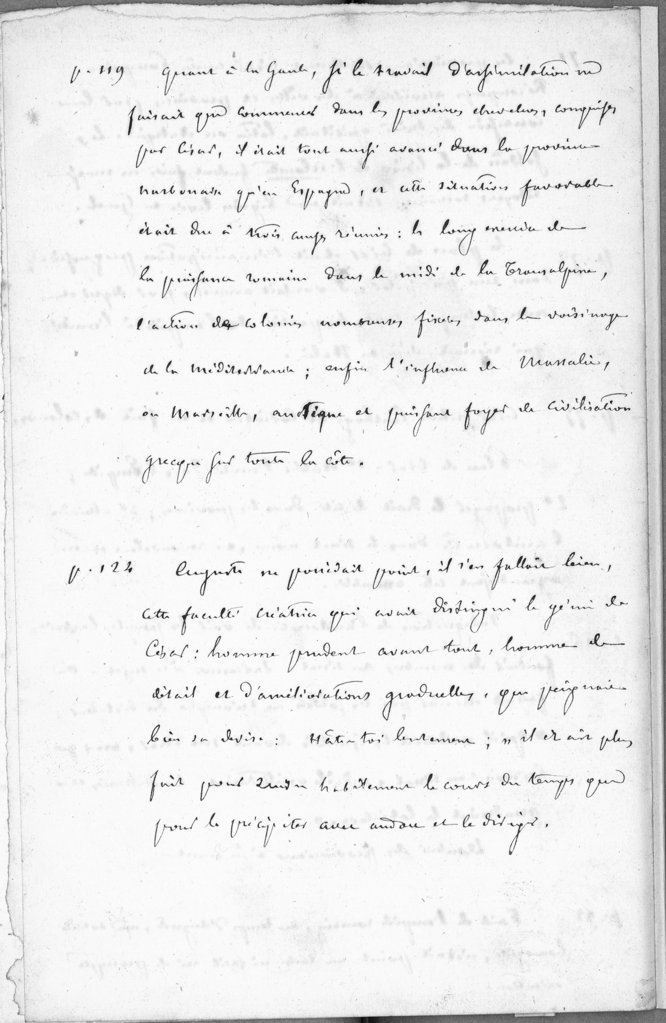 p. 119 Quant à la Gaule, si le travail d'assimilation ne
faisait que commencer dans les provinces chevelues, conquises
par César, il était tout aussi avancé dans la province
narbonaise qu'en Espagne, et cette situation favorable
était due à trois causes réunies : le long exercice de
la puissance romaine dans le midi de la Transalpine,
l'action de colonies nombreuses fixées dans le voisinage
de la Méditerranée ; enfin l'influence de Massalie,
ou Marseille, antique et puissant foyer de civilisation
grecque sur toute la côte.
p. 124 Auguste ne possédait point, il s'en fallait bien,
cette faculté créatrice qui avait distingué le génie de
César : homme prudent avant tout, homme de
détail et d'améliorations graduelles, que peignait
bien sa devise : Hâte-toi lentement ; il était plus
fait pour suivre habilement le cours du temps que
pour le précipiter avec audace et le diriger.